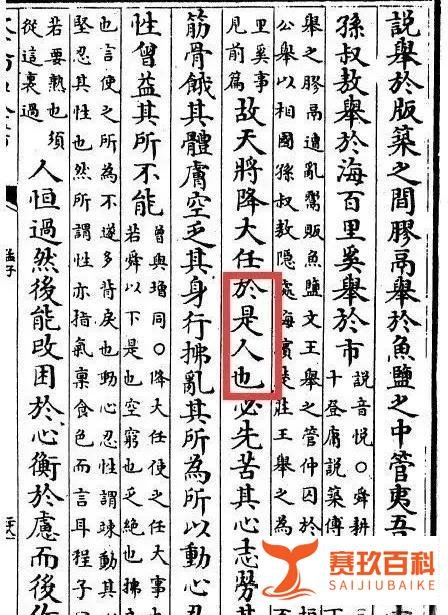 說舉於版築之間膠鬲舉於魚鹽之中管夷吾
孫叔敖舉於海百里奚舉於市
說音悅○舜耕
十登庸說築傅
舉之膠鬲遭亂鬻販魚鹽文王舉之管仲囚於
公舉以相國孫叔敖隱處海濱楚莊王舉之為
里奚事
見前篇
故天將降大任於是人也必先苦其心志勞其
筋骨餓其體膚空乏其身行拂亂其所為所以動心忍
性曾益其所不能
曾與增同○降大任使之任大事
若舜以下是也空窮也乏絕也拂
也言使之所為不遂多背戾也動心忍性謂竦動其
堅忍其性也然所謂性亦指氣稟食色而言耳程子曰
若要熟也須
從這裏過
人恒過然後能改困於心衡於慮而後作
孟子
赛玖百科
SAIJIUBAIKE